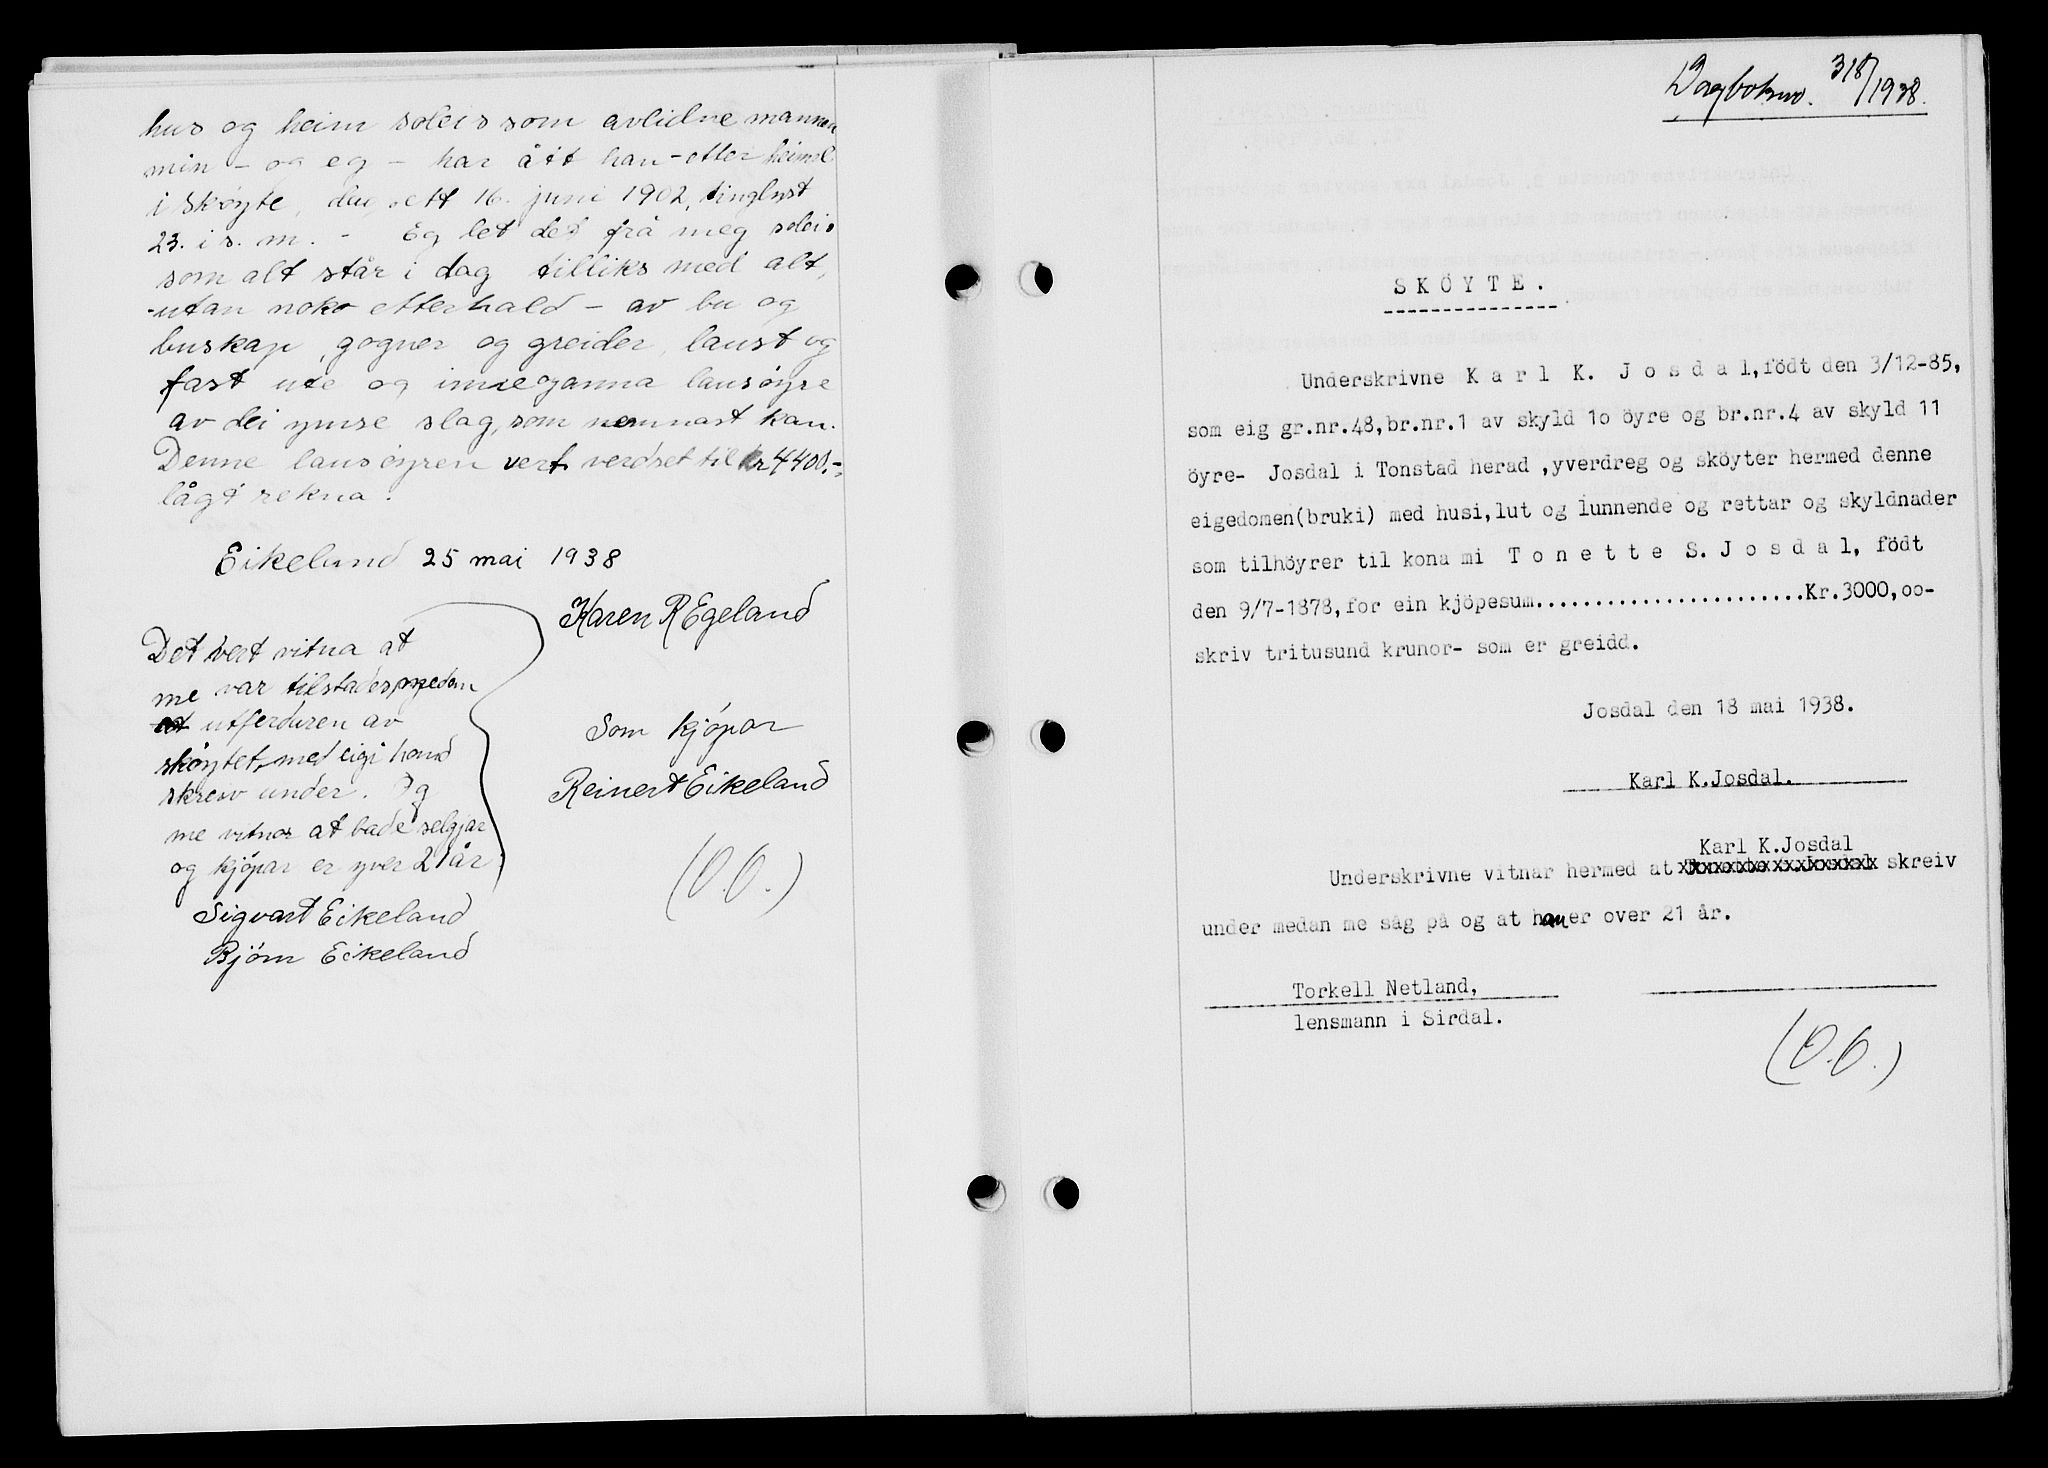 hus og heim soleis som avlidne mannen
min - og eg - har ått han - etter heimel
i skøyte, dag sett 16. juni 1902, tinglyst
23. i s. m. - Eg let det frå meg soleis
som alt står i dag tilliks med alt,
-utan noko etterhald - av bu og
buskap, gogner og greider, laust og
fast ute og inne ganna lausøyre
av dei ymse slag, som nemnast kan.
Denne lausøyren vert verdset til kr 4400,-,
lågt rekna.
Eikeland 25 mai 1938
Karen R Egeland
Det vert vitna at
me var tilstades, medan
utferduren av
skøytet, med eigi hond
skreiv under. Og
me vitnar at både seljar
og kjöpar er yver 21 år
Sigvart Eikeland
Björn Eikeland
Som kjöpar
Reinert Eikeland
(O.O.)
Dagboknr. 318/1938.
SKÖYTE.
Underskrivne Karl K. Josdal, födt den 3/12-85,
som eig gr.nr.48, br.nr.1 av skyld 1o öyre og br.nr.4 av skyld 11
öyre- Josdal i Tonstad herad ,yverdreg og sköyter hermed denne
eigedomen(bruki) med husi, lut og lunnende og rettar og skyldnader
som tilhöyrer til kona mi Tonette S. Josdal, födt
den 9/7-1878, for ein kjöpesum.......................Kr.3000,oo-
skriv tritusund krunor- som er greidd.
Josdal den 18 mai 1938.
Karl K.Josdal.
Karl K.Josdal
Underskrivne vitnar hermed at Tonette S.Josdal skreiv
under medan me såg på og at han er over 21 år.
Torkell Netland,
lensmann i Sirdal.
(O.O.)